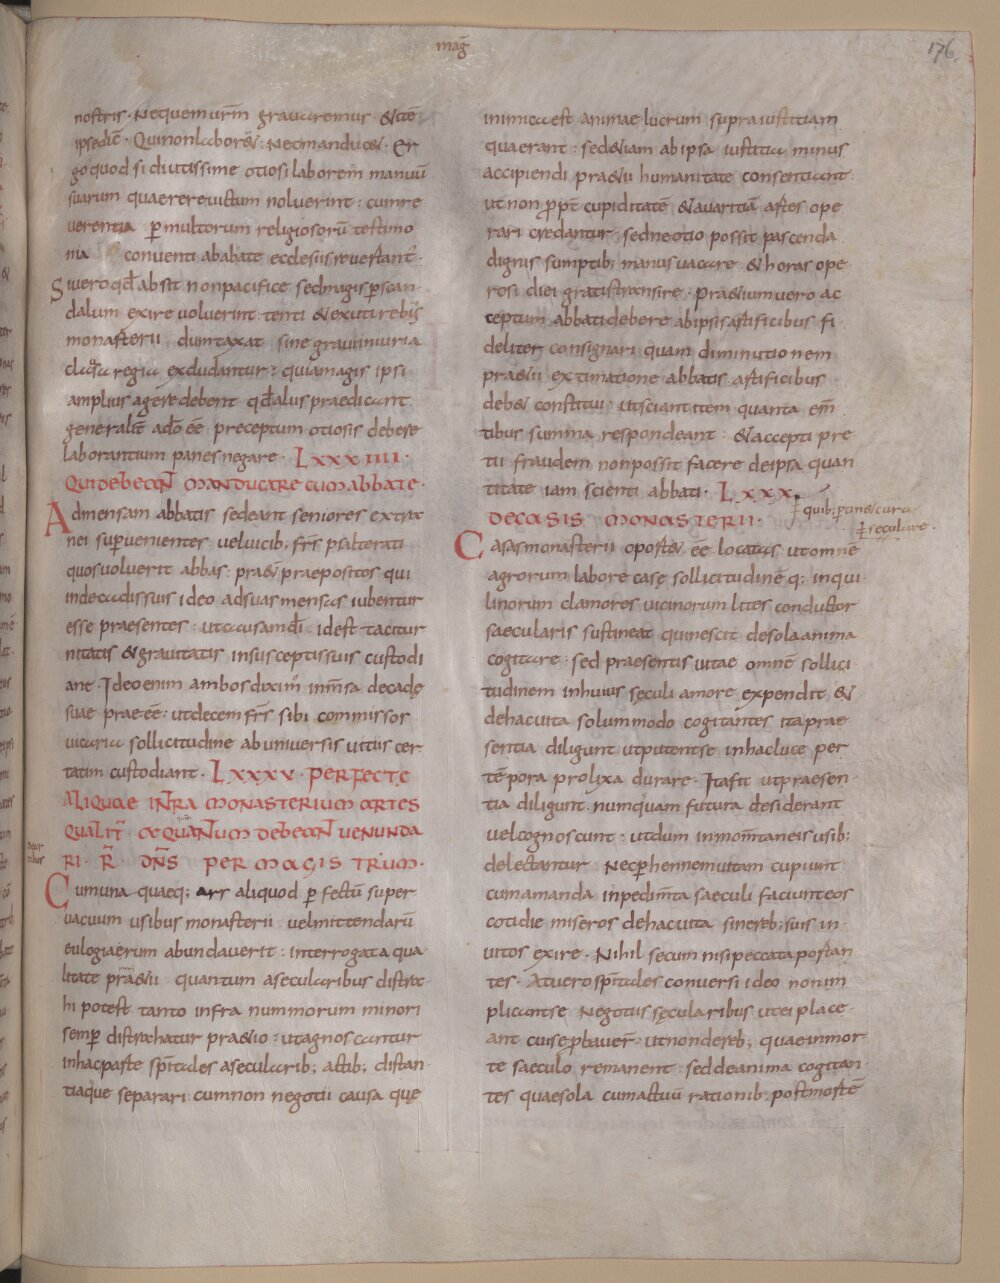 mag̅
176.
nostris · Nequem urm̅ grauaremus · &ite̅
ipse dic̅ · Qui non labor&; nec manduc& · Er
go quod si diutissime otiosi labore̅ manuu̅
suarum quaerere uictum noluerint : cum re
uerentia p̲ multorum religiosoru̅ testimo
nia conuenti ab abate ecclesiis reuestant᷑ ·
Si uero qd̅ absit non pacifice sed magis p̲ scan
dalum exire uoluerint · tenti & exuti reb;
monasterii dumtaxat sine graui iniuria
clausa regia excludantur : quia magis ipsi
amplius agere debent qd̅ alus praedicant
generalit̅ ad̅o ee̅ preceptum otiosis debere
laborantium panes negare · LXXXIIII ·
QUI DEBEAN̅ MANDUCARE CUM ABBATE ·
Ad mensam abbatis sedeant seniores extra
nei superuenientes uel uicib; frs̅ psalterati
quos uoluerit abbas : praet̅ praepositos qui
inde ad issuis ideo ad suas mensas iubentur
esse praesentes : ut causam di̅ · id est tacitur
nitatis & grauitatis in susceptis suis custodi
ant · Ideo enim ambos diximus in m̅sa decadę
suae prae ee̅ : ut decem frs̅ sibi commissos
uicaria sollicitudine ab uniuersis uitiis cer
tatim custodiant · LXXXV · PERFECTE
ALIQUAE INFRA MONASTERIUM ARTES
QUALIT̅ · A QUANTUM DEBEAN̅ UENUNDA
RI · R̅ · DN̅S PER MAGISTRUM ·
Cum una quaeq; ars aliquod p̲fectu̅ super
uacuum usibus monasterii uel mittendaru̅
eulogiaerum abundauerit : interrogata qua
litate pr&ii quantum a secularibus distra
hi potest tanto infra nummorum minori
semp̲ distrahatur pr&io : ut agnoscantur
in hac parte spi̅tales a secularib; actib; distan
tia que separari · cum non negotii causa quę
inimica est animae lucrum supra iustitiam
quaerant : sed &iam ab ipsa iustitia minus
accipiendi pr&ii humanitate consentiant
ut non propt̅ cupiditate̅ & auaritia̅ artes ope
rari credantur · sed ne otio possit pascenda
dignis sumptib; manus uacare & horas ope
rosi diei gratis transire · Pr&ium uero ac
ceptum abbati debere ab ipsis artificibus fi
deliter consignari quam diminutionem
pr&ii extimatione abbatis artificibus
deb& constitui · ut sciant item quanta em̅
tibus summa respondeant : & accepti pre
tii fraudem non possit facere de ipsa quan
titate iam scienti abbati · LXXX
quib; pane/ cura
DE CASIS MONASTERII ·
seculare ·
Casas monasterii oport& ee̅ locatas ut omne̅
agrorum labore̅ casę sollicitudine̅ q; inqui
linorum clamores uicinorum lites conductor
saecularis sustineat qui nescit de sola anima
cogitare : sed praesentis uitae omne̅ sollici
tudinem in huius sęculi amore expendit &
de hac uita solummodo cogitantes ita prae
sentia diligunt ut putent se in hac luce per
te̅pora prolixa durare · Ita fit ut praesen
tia diligunt · numquam futura desiderant
uel cognoscunt : ut dum in mom̅taneis usib;
delectantur Nec p̲hennem uitam cupiunt
cum amanda inpedim̅ta saeculi faciunt eos
cotidie miseros de hac uita sine reb; suis in
uitos exire · Nihil secum nisi peccata portan
tes · At uero spi̅tales conuersi ideo non im
plicant se Negotiis sęcularibus ut ei place
ant cui se p̲bauer̅ · ut non de reb; quae in mor
te saeculo remanent sed de anima cogitan
tes quae sola cum actuu̅ rationib; post morte̅